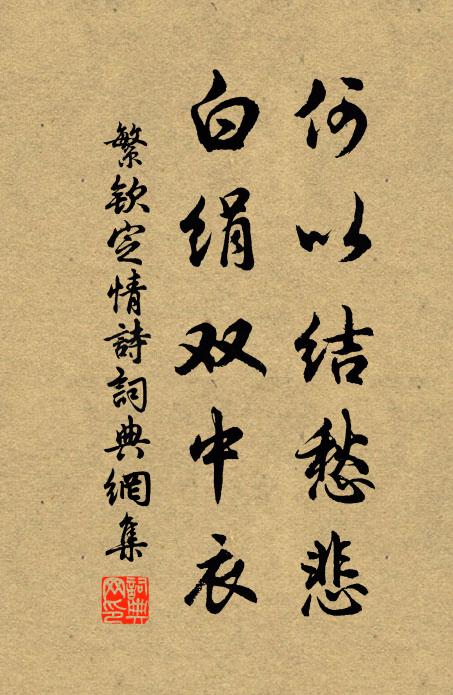 何以结愁悲
白绢双中衣
繁欽定情詩詞典網集
詞典網印